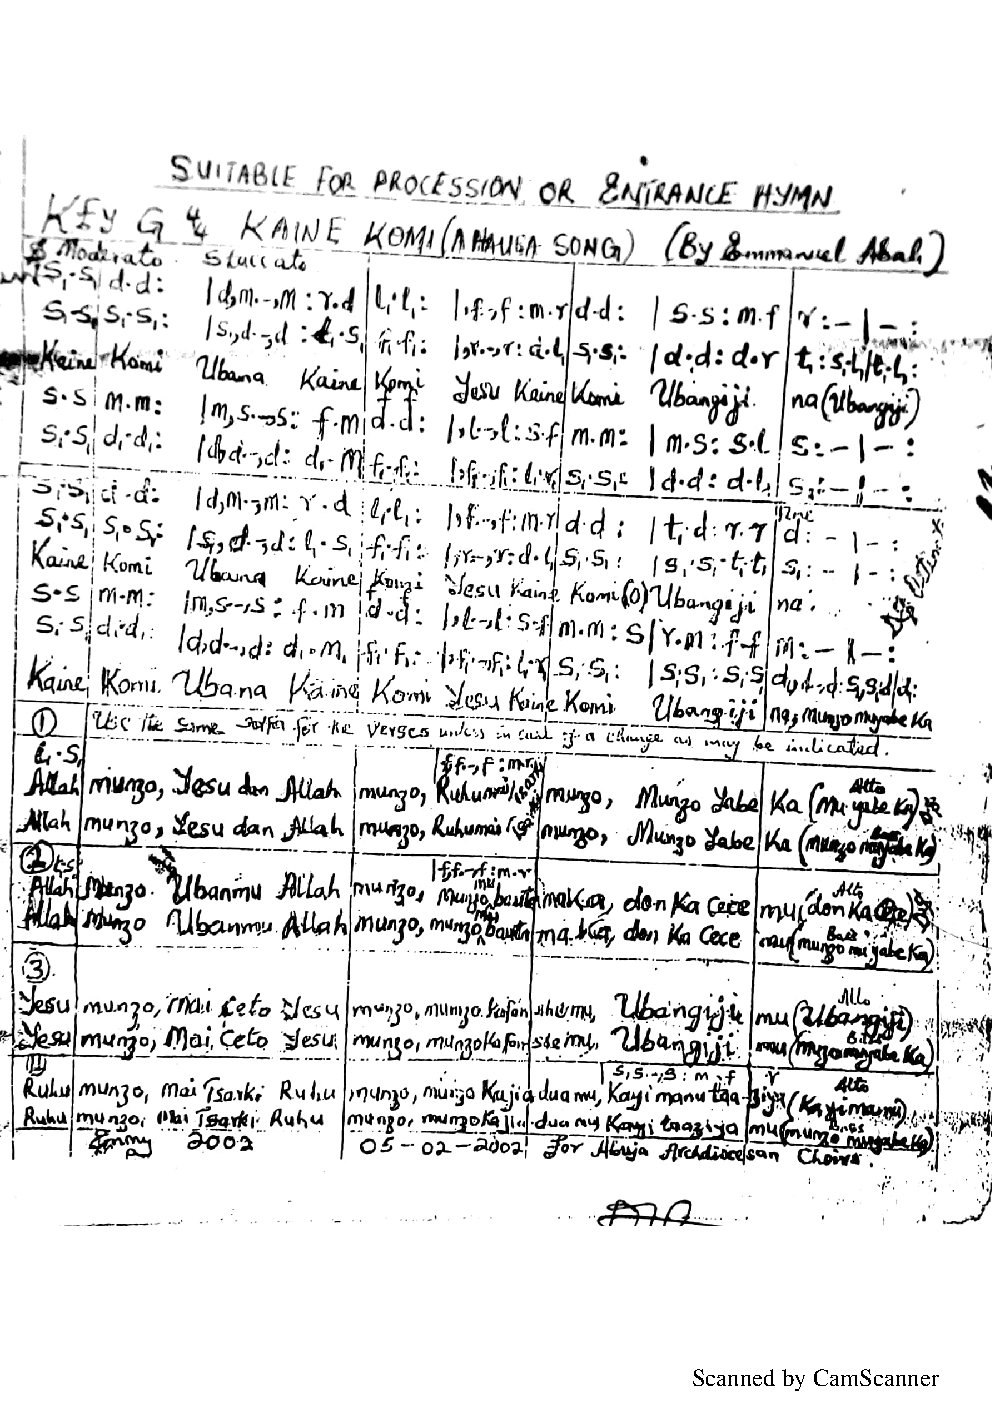 SUITABLE FOR PROCESSION OR ENTRANCE HYMN
KEY G 4/4 KAINE KOMI (A HAUSA SONG) (By Emmanuel Abah)
Moderato Staccato
S₁.S₁ d.d: |d,m.-,m : r.d l₁.l₁: |,f.-,f : m.r d.d: | s.s : m.f r : - | - :
S₁.S₁ S₁.S₁: |s₁,d.-,d : l₁.S₁ f₁.f₁: |,r.-,r : d.l₁ S₁.S₁: | d.d : d.r t₁ : S₁.t₁ | t₁.t₁:
Kaine Komi Ubana Kaine Komi Yesu Kaine Komi Ubangiji na (Ubangiji)
S.S m.m: |m,s.-,s : f.m d.d: |,l.-,l : s.f m.m: | m.s : s.l s : - | - :
S₁.S₁ d.d.: |d,d.-,d : d.m f₁.f₁: |,f₁.-,f₁ : l₁.r S₁.S₁: | d.d : d.l₁ S₁ : - | - :
S₁.S₁ d.d: |d,m.-,m : r.d l₁.l₁: |,f.-,f : m.r d.d : | t₁.d : r.r d : - | - :
S₁.S₁ S₁.S₁: |s₁,d.-,d : l₁.S₁ f₁.f₁: |,r.-,r : d.l₁ S₁.S₁: | S₁.S₁ : t₁.t₁ S₁ : - | - :
Kaine Komi Ubana Kaine Komi Yesu Kaine Komi (O) Ubangiji na.
S.S m.m: |m,s.-,s : f.m d.d: |,l.-,l : s.f m.m : S | r.m : f.f m : - | - :
S₁.S₁ d.d: |d,d.-,d : d.m₁ f₁.f₁: |,f₁.-,f₁ : l₁.r S₁.S₁: | S₁.S₁ : S₁.S₁
Kaine Komi Ubana Kaine Komi Yesu Kaine Komi Ubangiji na, munzo muyabe Ka
① Use the same solfa for the verses unless in case if a change as may be indicated.
l₁.S₁ f,f.-,f : m.r
Allah munzo, Yesu dan Allah munzo, Ruhumai munzo, Munzo Yabe Ka (Alto Mu yabe Ka)
Allah munzo, Yesu dan Allah munzo, Ruhumai munzo, Munzo Yabe Ka (Bass munzo muyabe Ka)
② f,f.-,f : m.r
Allah Munzo Ubanmu Allah munzo, munzo mu bauta ma Ka, don Ka Cece mu (Alto don Ka Cece)
Allah Munzo Ubanmu Allah munzo, munzo mu bauta ma Ka, don Ka Cece mu (Bass munzo mu yabe Ka)
③
Yesu munzo, Mai Ceto Yesu munzo, munzo Kafan she mu, Ubangiji mu (Alto Ubangiji)
Yesu munzo, Mai Ceto Yesu munzo, munzo Ka fan she mu, Ubangiji mu (Bass munzo muyabe Ka)
S,S.-,S : m.f r
Ruhu munzo, Mai Tsarki Ruhu munzo, munzo Kajia dua mu, Kayi manu taa-ziya (Alto Kayi mamu)
Ruhu munzo, Mai Tsarki Ruhu munzo, munzo Kajia dua mu Kayi taaziya mu (Bass munzo muyabe Ka)
Emmy 2002 05-02-2002 for Abuja Archdiocesan Choirs.
Scanned by CamScanner